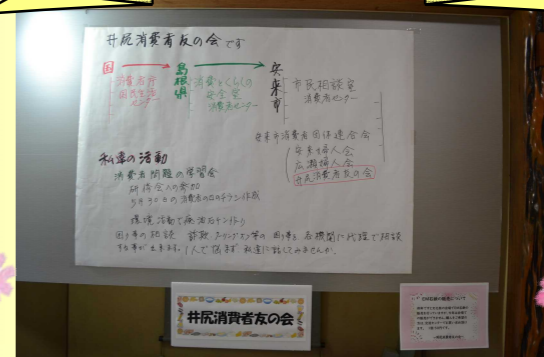 井尻消費者友の会です
国 → 島根県 → 安来市
消費者庁
国民生活センター
消費とくらしの安全室
消費者センター
市民相談室
消費者センター
安来市消費者団体連合会
安来婦人会
広瀬婦人会
井尻消費者友の会
私達の活動
消費者問題の学習会
研修会への参加
5月30日の消費者の日のチラシ作成
環境活動で廃油石ケン作り
困り事の相談 詐欺、クーリングオフ等の困り事を各機関に代理で相談
する事が出来ます。1人で悩まず私達に話してみませんか。
井尻消費者友の会